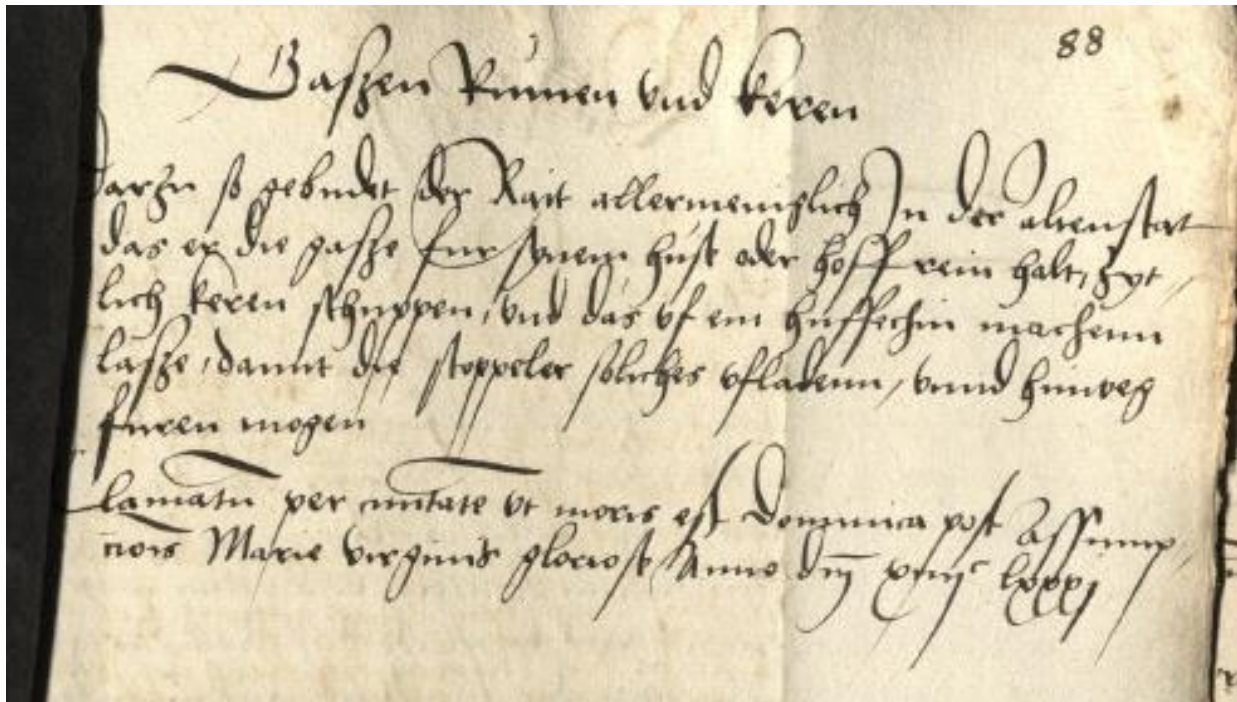 88
Gaßen Rumen vnd keren
Darzu so gebudet der Rait allermeniglich In der altenstat
das er die gaße fur synem huse oder hoff rein halt, zyt
lich keren schuppen, vnd das vf ein huffechin machenn
laße, damit die stoppeler soliches vfladenn, vnnd hinweg
furen mogen
clamatu per ciuitate vt moris est Dominica post Assump
cionis Marie virginis gloriose Anno dni xiiijc lxxxj